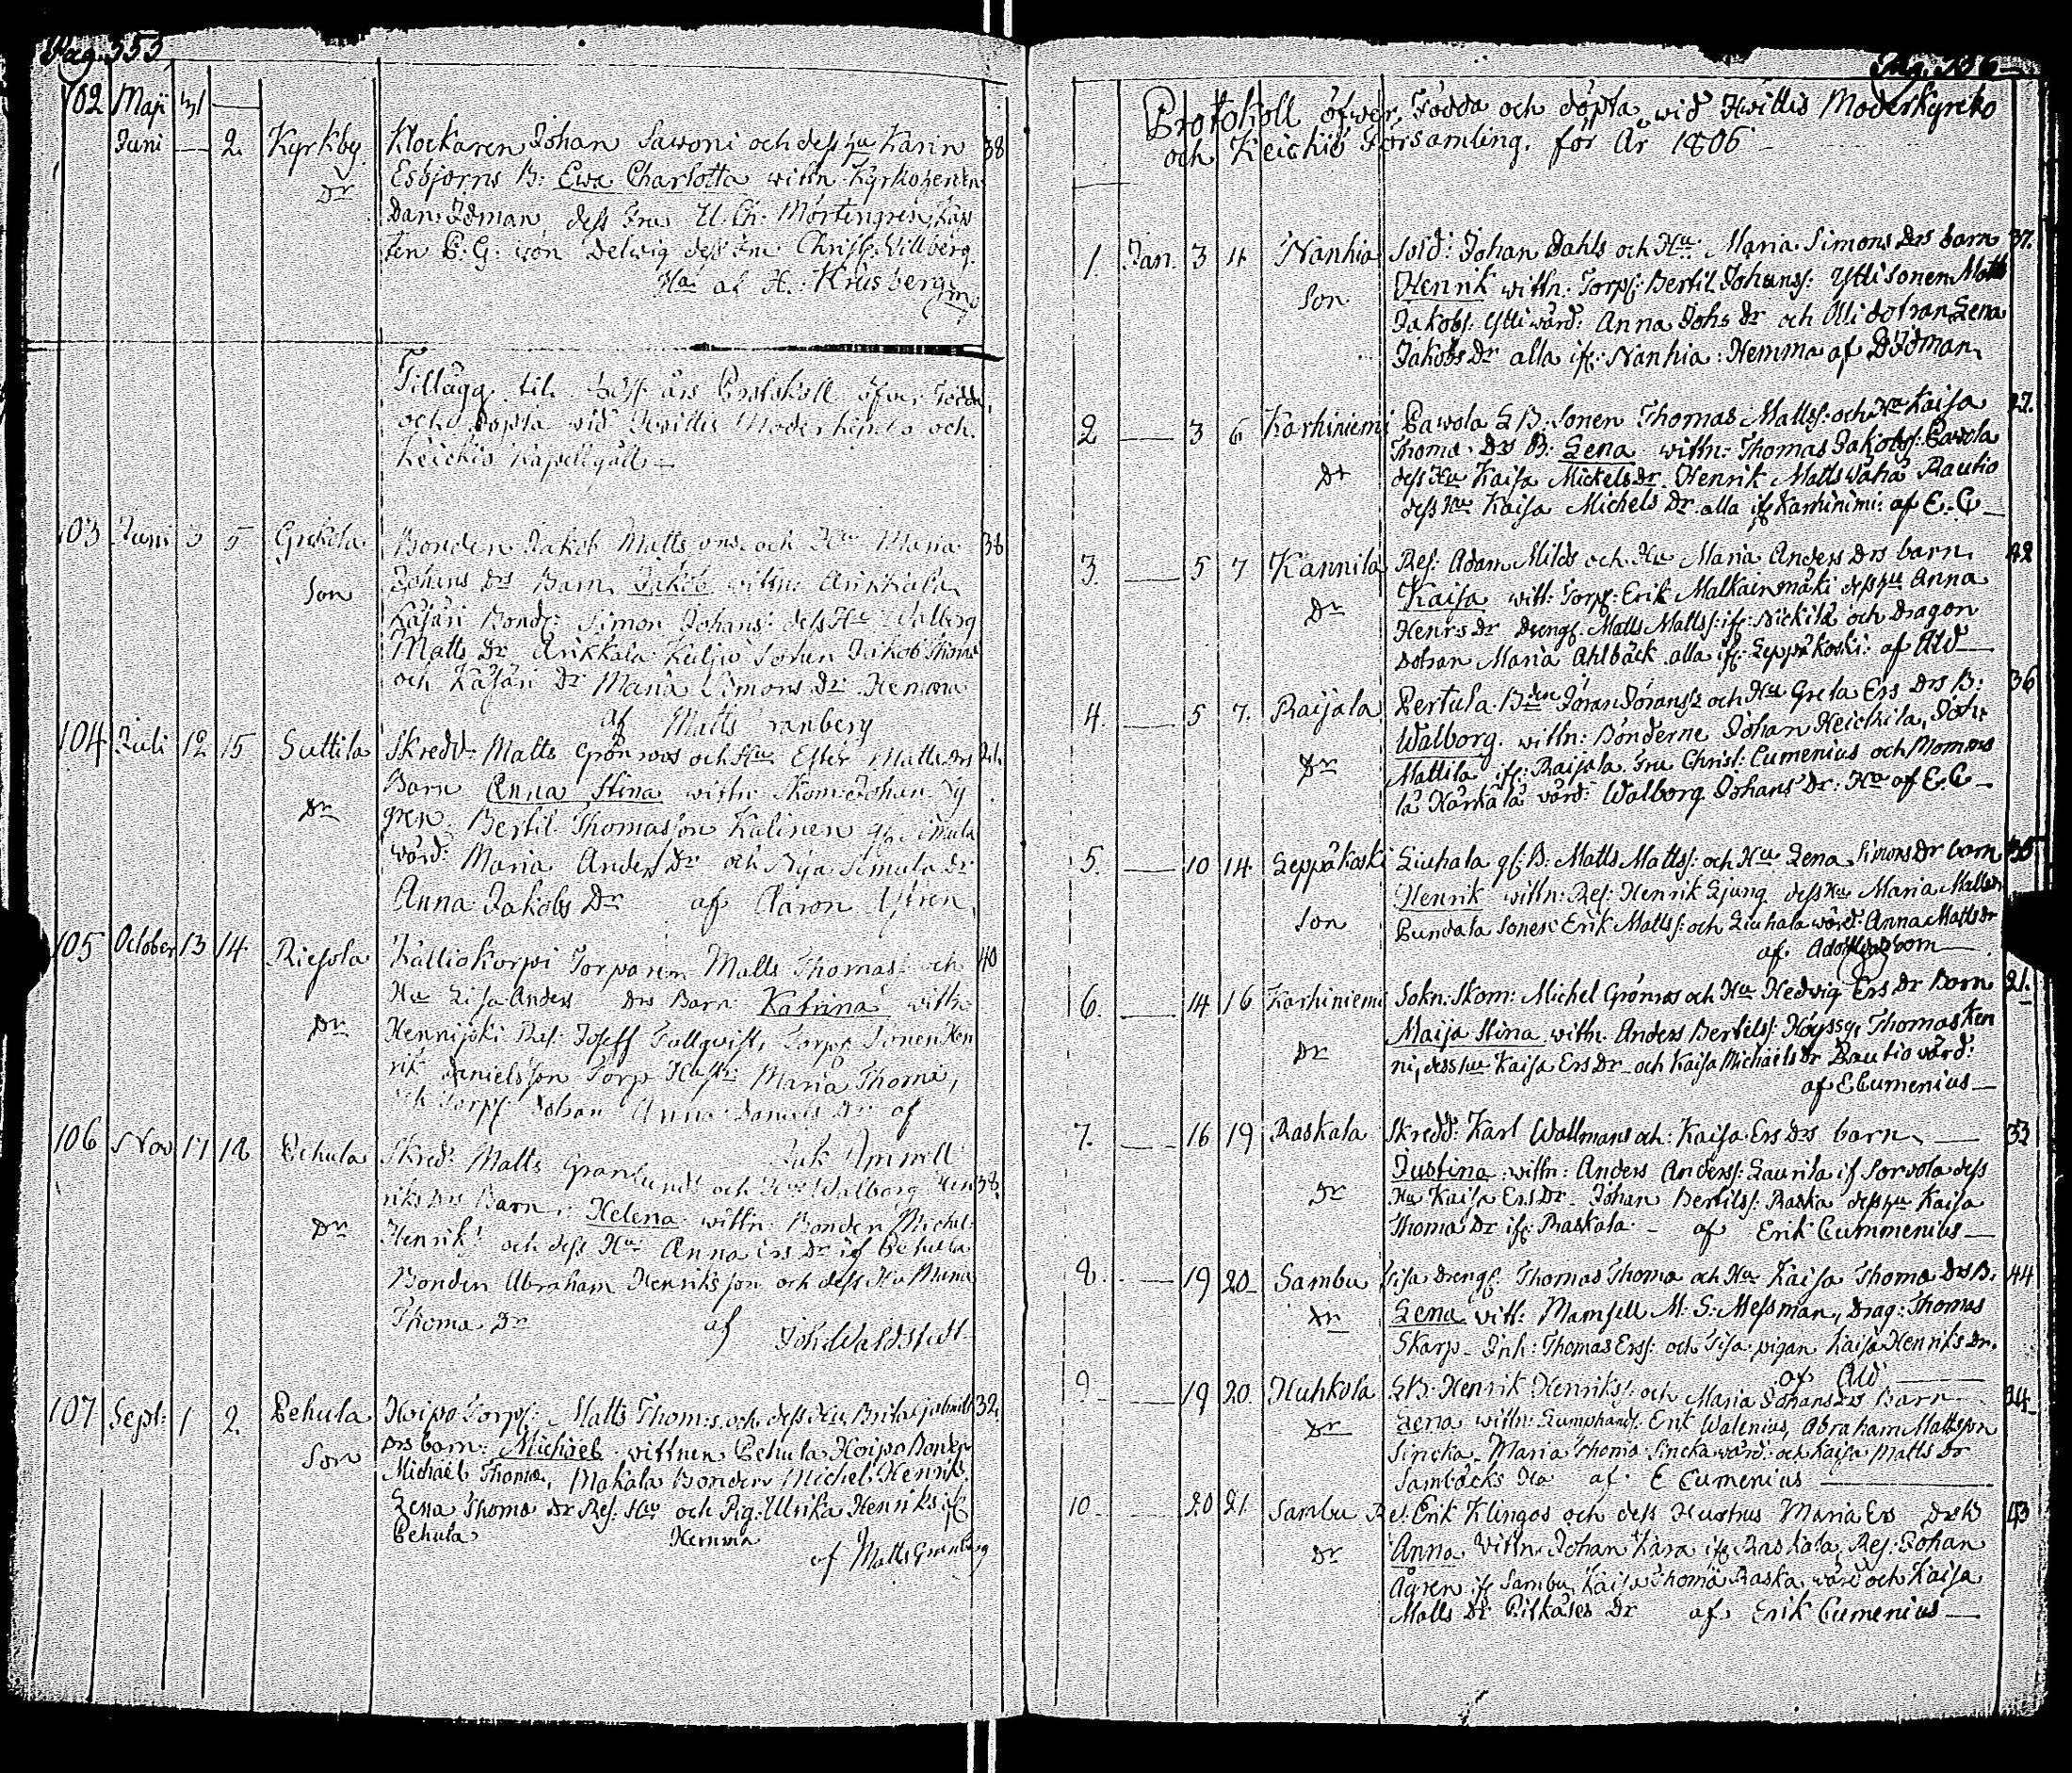 Pag. 353
102 Maji 31
Juni — 2. Kyrkby Klockaren Johan Sawoni och dess Hu Karin 38
Dr Esbjörns B: Ewa Charlotta wittn. Kyrkoherden
Dan: Idman dess Fru U. Ch. Mörtengren, Kap
ten B. G. von Delwig dess Fru Christ. Villberg.
Ha: af H. Krusberg
Tillägg til års Protokoll öfver Födde
och döpta vid Hwittis Moderkyrka och
Keickiö Kapellgäll —
103 Juni 3 5 Grekila Bonden Jakob Mattsons och Hu Maria 38
Son Johans Drs Barn Jakob wittn: Ankkala
Käsäri Bond: Simon Johans: dess Hu Walborg
Matts Dr Ankkala Kuljo Sonen Jakob Thomas
och Käsäri Dr Maria Simons Dr Hemma
af Matts Granberg
104 Juli 12 15 Suttila Skredd: Matts Grönroos och Hu Ester Matts Drs 24.
Dr Barn Anna Stina wittn: Skom: Johan Ny
gren, Bertil Thomasson Kalinen
wärd: Maria Anders Dr och Dr
Anna Jakobs Dr af Aaron
105 October 13 14. Riesola Kalliokorpi Torparen Matts Thomas: och 40
Hu Lisa Anders Drs Barn Katrina wittn
Dr Hennijoki Ref: Joseff Fallqvist, Torps Sonen Hen
rik Danielsson Torp Hustr: Maria Thoma,
och Torpf Johan Anna Daniels Dr af
106 Nov 17 18 Pehula Skred: Matts Granlunds och Hu Walborg Hen 38.
riks Drs Barn: Helena wittn: Bonden Michel
Dr Henriks: och dess Hu Anna Ers Dr if Pehula
Bonden Abraham Henriksson och dess Hu Maria
Thoma Dr af Joh Waldstedt
107 Sept: 1 2. Pehula Hoipo Torpf: Matts Thom:s och dess Hu Brita 32
Son Drs barn: Michael wittnen Pehula Hoipo Bonden
Michael Thoma, Makala Bonden Michel Henriks.
Lena Thoma Dr Ref: Hu och Pig: Ulrika Henriks if
Pehula Hemma
af Matts Granberg
Protokoll öfwer Födda och döpta wid Hwittis Moderkyrcko
och Keickiö Församling. för År 1806
1. Jan. 3 4 Nanhia Sold: Johan Dahls och Hu: Maria Simons Drs barn 37.
Son Henrik wittn: Torpf: Bertil Johanss: Ylli sonen Matts
Jakobs: Ylli wärd: Anna Johs Dr och Ylli dotran Lena
Jakobs Dr alla if: Nanhia: Hemma af Dödman
2 — 3 6 Karhiniemi Pawola L B: sonen Thomas Mattss: och Hu Kaisa 27.
Thoma Drs B: Lena wittn: Thomas Jakobss: Pawola
Dr dess Hu Kaisa Mickels Dr. Henrik Matts Wähä Rautio
dess Hu Kaisa Michels Dr. alla if Karhinimi: af E. C —
3. — 5 7 Kannila Ref: Adam Milds och Hu Maria Anders Drs barn 42
Kaisa witt: Torpf: Erik Malkainmäki dess Hu Anna
Dr Henrs Dr Drengf. Matts Mattss: if: Nickilä och Dragon
Dotran Maria Ahlbäck alla if: Seppäkoski: af AID —
4. — 5 7. Raijala Pertula Bden Jöran Jöranss: och Hu Greta Ers Drs B: 36
Walborg. wittn: Bönderne Johan Heickila, Joh:
Dr Mattila if: Raijala Fru Christ: Cumenius och Momois
la Härkälä värd: Walborg Johans Dr: Ha af E. C —
5. — 10 14. Seppäkoski Liuhala gf: B: Matts Mattss: och Hu Lena Simons Dr barn 35
Henrik wittn: Ref: Henrik Ljung dess Hu Maria Matts Dr
Son Pundala Sonen Erik Mattss: och Liuhala wärd: Anna Matts Dr
af
6. — 14 16 Karhiniemi Sokn: Skom: Michel Grönroos och Hu Hedvig Ers Dr Barn 21.
Maija Stina wittn. Anders Bertelss: Höyssy, Thomas Ken
Dr ni, dess Hu Kaisa Ers Dr — och Kaisa Michaels Dr Rautio värd:
af E Cumenius —
7. — 16 19 Raskala Skredd: Karl Wallmans och: Kaisa Ers Drs barn — 33
Justina: wittn: Anders Anderss: Laurila if Sorvola dess
Dr Hu Kaisa Ers Dr — Johan Bertilss: Raska dess Hu Kaisa
Thoma Dr if: Raskala — af Erik Cummenius —
8. — 19 20 — Sambu Sisa Drengf: Thomas Thoma och Hu Kaisa Thoma Drs B. 44
Dr Lena witt: Mamsell M: S: Messman, Drag: Thomas
Skarp — Inh: Thomas Erss: och Sisa pigan Kaisa Henriks Dr.
af AID —
9 — 19 20. Huhkola LB: Henrik Henrikss: och Maria Johans Drs Barn 34
Dr Lena wittn: Lumphandl: Erik Walenius, Abraham Mattsson
Sincka, Maria Thoma Sincka wärd: och Kaisa Matts Dr
Sambäcks Ha af. E Cumenius —
10. — 20 21. Sambu Ref: Erik Klingas och dess Hustrus Maria Ers Drs B 43
Dr Anna Wittn: Johan Kära if: Raskala, Ref: Johan
Ågren if Sambu, Kaisa Thoma Raska, värd och Kaisa
Matts Dr Pitkäses Dr af Erik Cumenius —